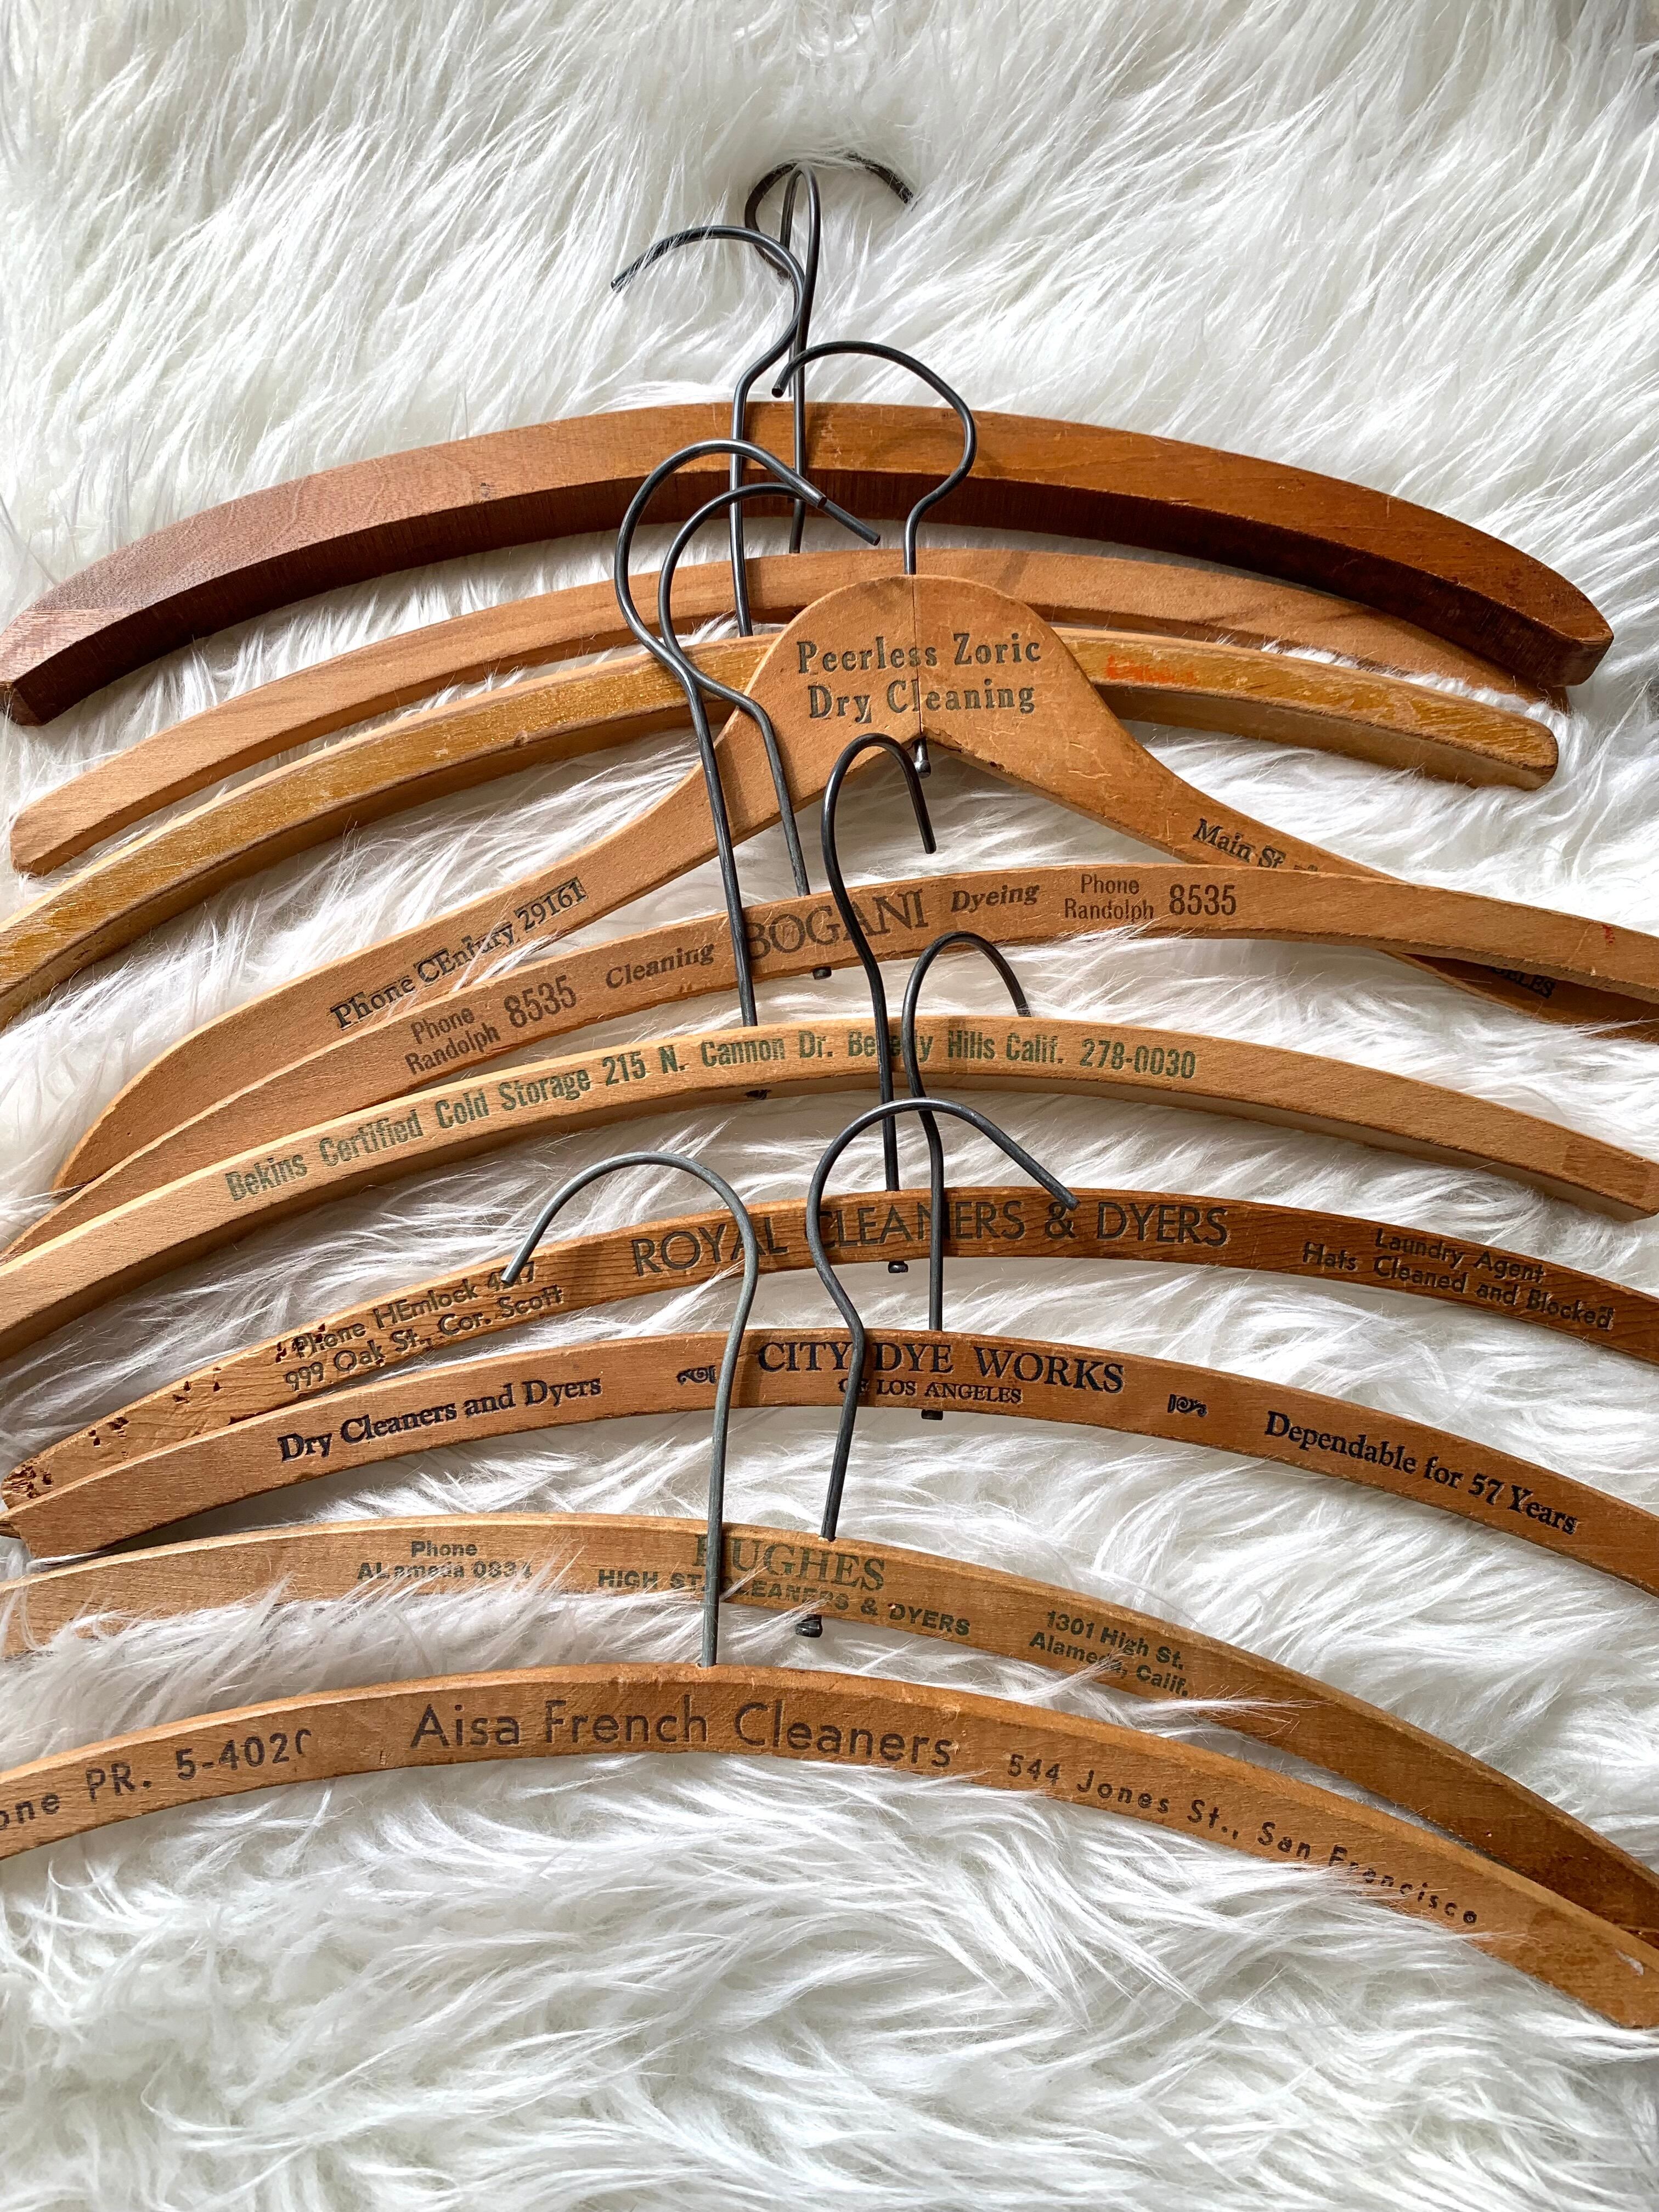 Peerless Zoric
Dry Cleaning
Phone CEntury 29161
Main St
Phone
Randolph 8535
Cleaning
BOGANI
Dyeing
Phone
Randolph 8535
Bekins Certified Cold Storage 215 N. Cannon Dr. Beverly Hills Calif. 278-0030
Phone HEmlock
999 Oak St., Cor. Scott
ROYAL CLEANERS & DYERS
Laundry Agent
Hats Cleaned and Blocked
Dry Cleaners and Dyers
CITY DYE WORKS
OF LOS ANGELES
Dependable for 57 Years
Phone
ALameda 0834
HUGHES
HIGH ST. CLEANERS & DYERS
1301 High St.
Alameda, Calif.
PR. 5-402
Aisa French Cleaners
544 Jones St., San Francisco